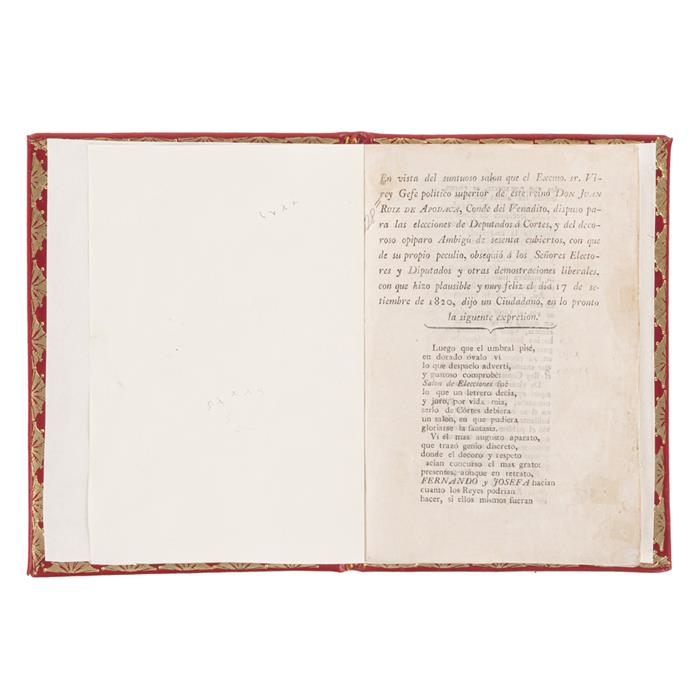 En vista del suntuoso salon que el Excmo. sr. Vi-
rey Gefe politico superior de este reino DON JUAN
RUIZ DE APODACA, Conde del Venadito, dispuso pa-
ra las elecciones de Deputados á Cortes, y del deco-
roso opíparo Ambigú de sesenta cubiertos, con que
de su propio peculio, obsequió á los Señores Electo-
res y Diputados y otras demostraciones liberales.
con que hizo plausible y muy feliz el dia 17 de se-
tiembre de 1820, dijo un Ciudadano, en lo pronto
la siguente expresion.
Luego que el umbral pisé,
en dorado óvalo vi
lo que despacio advertí,
y gustoso comprobé:
Salon de Elecciones fué
lo que un letrero decia,
y juro, por vida mia,
serlo de Córtes debiera
un salon, en que pudiera
gloriarse la fantasía.
Vi el mas augusto aparato,
que trazó genio discreto,
donde el decoro y respeto
acian concurso el mas grato:
presentes, aunque en retrato,
FERNANDO y JOSEFA hacian
cuanto los Reyes podrian
hacer, si ellos mismos fueran